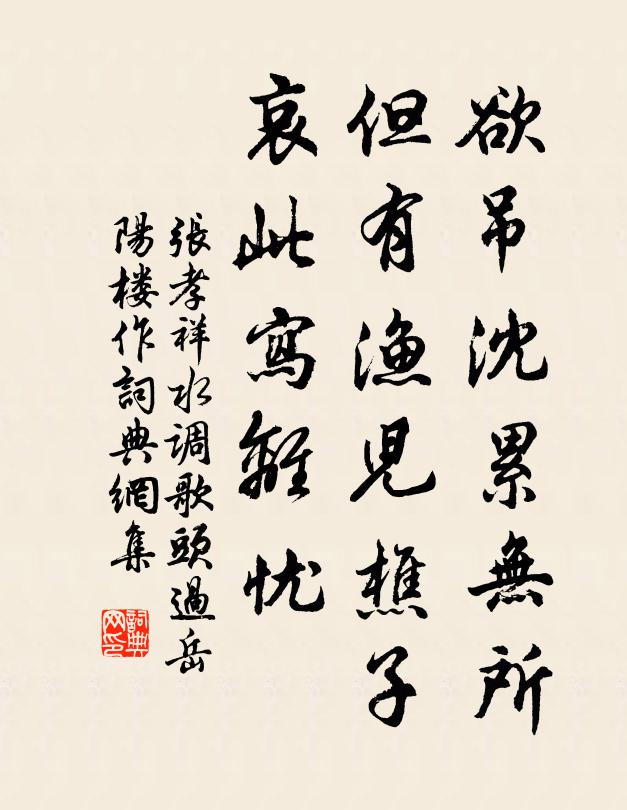 欲吊沈累無所
但有漁兒樵子
哀此寫離忧
張孝祥水调歌頭過岳
陽楼作詞典網集
詞典
网印